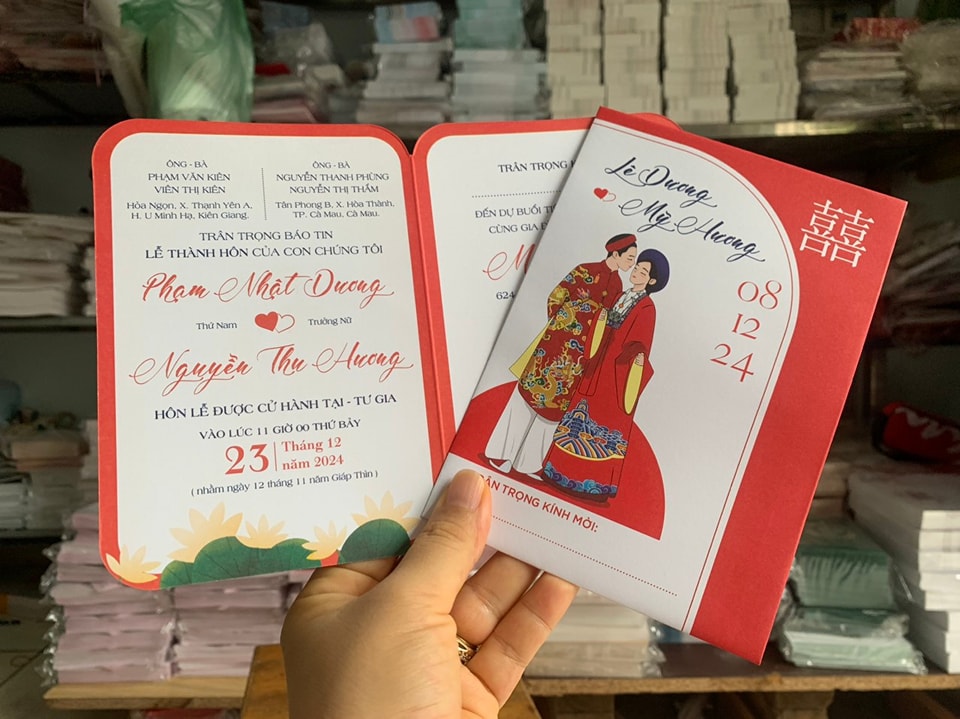 ÔNG - BÀ
PHẠM VĂN KIÊN
VIÊN THỊ KIÊN
Hỏa Ngọn, X. Thạnh Yên A,
H. U Minh Hạ, Kiên Giang.
ÔNG - BÀ
NGUYỄN THANH PHÙNG
NGUYỄN THỊ THẮM
Tân Phong B, X. Hòa Thành,
TP. Cà Mau, Cà Mau.
TRÂN TRỌNG BÁO TIN
LỄ THÀNH HÔN CỦA CON CHÚNG TÔI
Phạm Nhật Dương
Thứ Nam
Trưởng Nữ
Nguyễn Thu Hương
HÔN LỄ ĐƯỢC CỬ HÀNH TẠI - TƯ GIA
VÀO LÚC 11 GIỜ 00 THỨ BẢY
23 Tháng 12
năm 2024
( nhằm ngày 12 tháng 11 năm Giáp Thìn )
TRÂN TRỌNG
ĐẾN DỰ BUỔI
CÙNG GIA
624
Lê Dương
Mỹ Hương
囍
08
12
24
TRỌNG KÍNH MỜI: